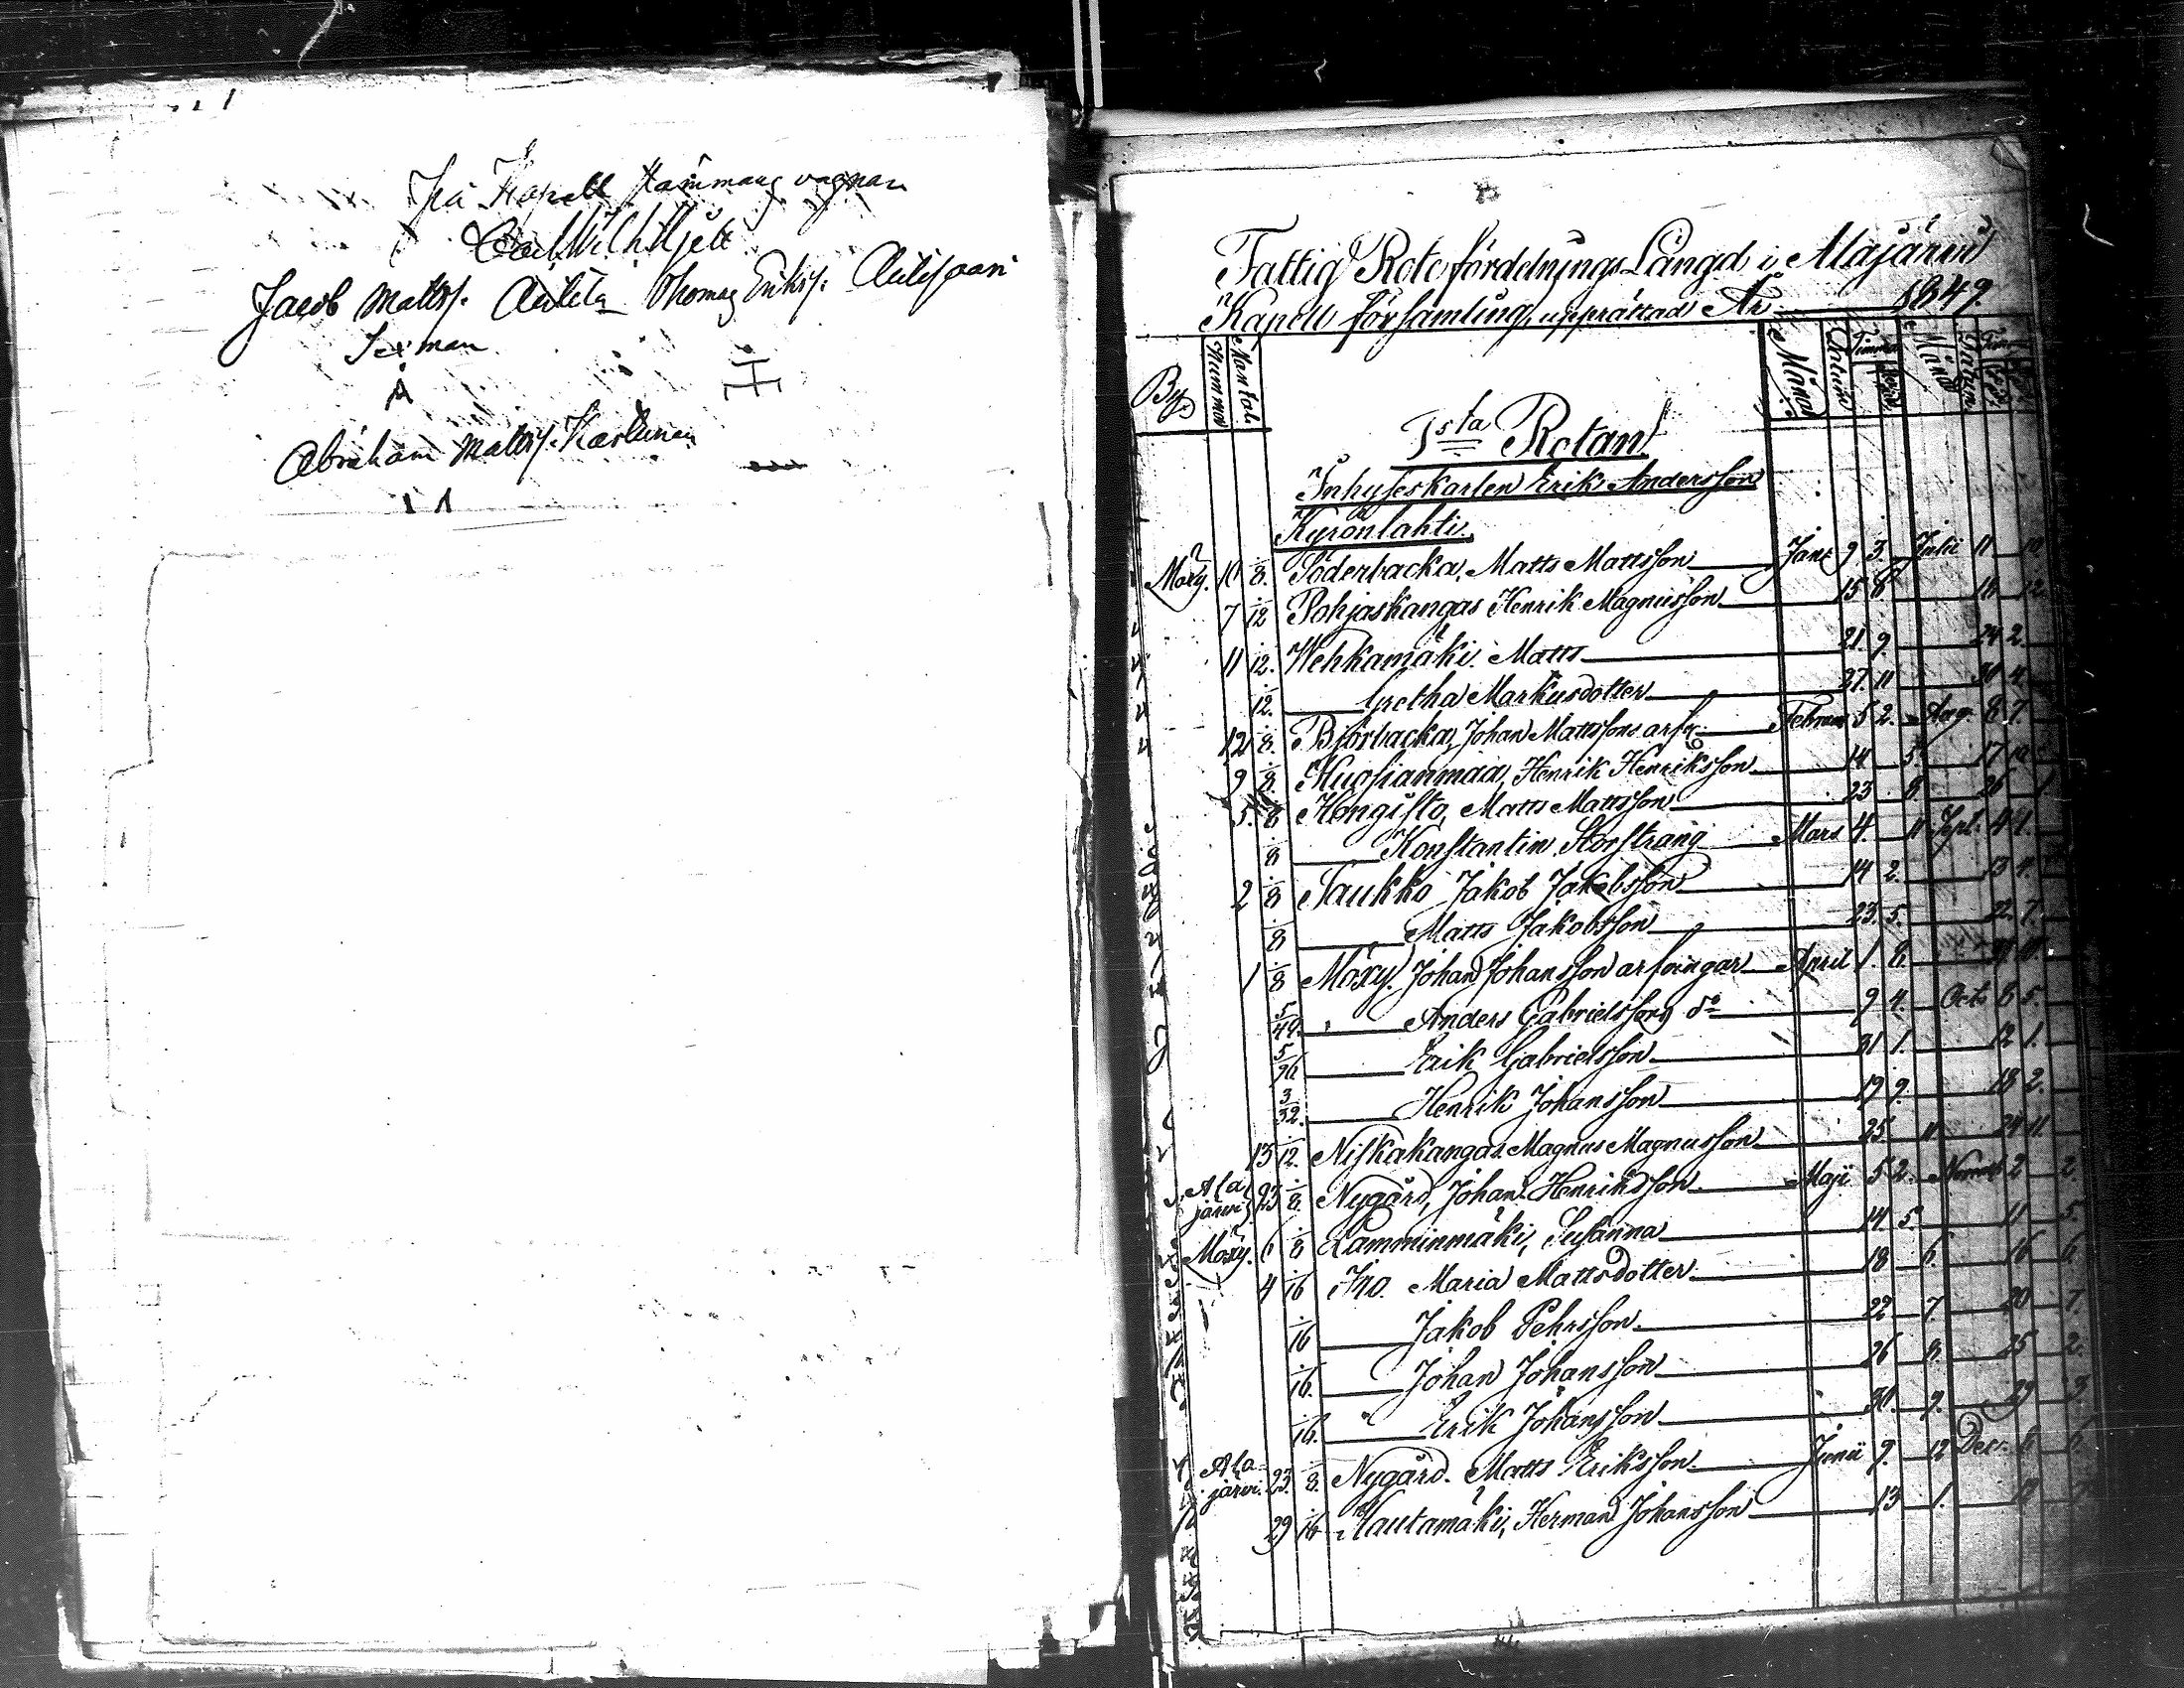 På Kapell stämmans vagnar
Carl Wilh Kjell
Jacob Matts/. Autila Thomas Eriks/: Autisaari
Abraham Matts/. Karlunen
Fattig Rotefördelnings Längd i Alajärvi
Kapell församling, upprättad År 1849.
By. Nummer Mantal. Månad Datum Timma Månad Datum
1sta Rotan
Inhyseskarlen Erik Andersson
Kyrönlahti.
Möxy. 10 1/8. Söderbacka, Matts Mattsson Janr 9 3. Julii 11 10
7 1/12 Pohjaskangas Henrik Magnusson 15 6 18 12
11 1/12. Wehkamäki. Matts 21. 9. 24 2.
1/12. Gretha Markusdotter 27. 11 30 4.
12 1/8. Björbacka, Johan Mattssons arfv. Februar 5 2. Aug. 8 7.
9 1/8. Huosianmaa, Henrik Henriksson 14 5. 17 10
5. 1/8 Hengisto, Matts Mattsson 23 8. 26 1.
1/8 Konstantin Storstrang Mars 4. 11 Sept. 4 1.
2 1/8 Taukko Jakob Jakobsson 14 2. 13 4.
1/8 Matts Jakobsson 23. 5. 22. 7.
1 1/8 Möxy. Johan Johansson arfvingar April 1. 8.
5/49. Anders Gabrielsson do 9 4. Octo 8 5.
5/96 Erik Gabrielsson 11 1. 12 1.
3/32. Henrik Johansson 19 9. 18 2.
13 1/12. Niskakangas. Magnus Magnusson 25 11 24 11.
Ala järvi 23 1/8. Nygård, Johan Henriksson Maji 5 2. Novemb 2 2.
Möxy. 6 1/8 Lamminmäki, Susanna 14 5. 11 5.
4 1/16 Iro. Maria Mattsdotter 18 6. 16 6
1/16 Jakob Pehrsson 22 7. 20 7.
1/16. Johan Johansson 26 8. 25 2.
1/16. Erik Johansson 30. 9. 29 3.
Ala järvi. 23. 1/8. Nygård. Matts Eriksson Junii 9. 12 Decr. 6 6.
29 1/16 Hautamäki, Herman Johansson 13 1. 12